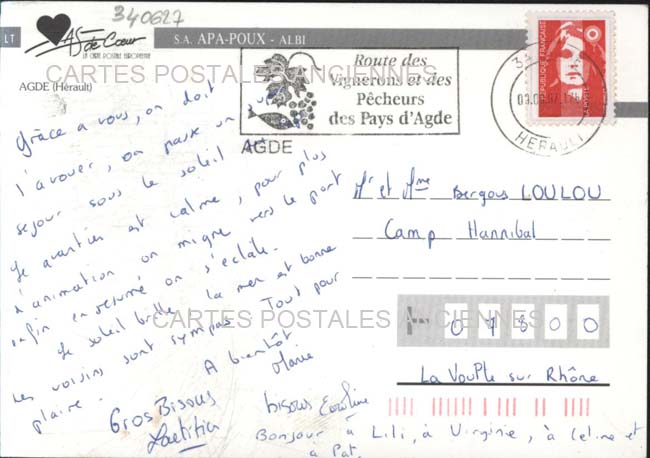 340627
LT
As de Cœur
LA CARTE POSTALE EUROPÉENNE
S.A. APA-POUX - ALBI
CARTES POSTALES ANCIENNES
AGDE (Hérault)
Route des
Vignerons et des
Pêcheurs
des Pays d'Agde
AGDE
HERAULT
RÉPUBLIQUE FRANÇAISE
Grâce a vous, on doit
l'avouer, on passe un
sejour sous le soleil
Le quartier est calme, pour plus
d'animation on migre vers le port
enfin en resumé on s'éclate.
Le soleil brille la mer est bonne
Les voisins sont sympas Tout pour
plaire.
CARTES POSTALES ANCIENNES
A bientôt
Marie
Gros Bisous
Laetitia
bisous Caroline
Bonjour à Lili, à Virginie, à Celine et
à Pat.
Mr et Mme Bergous LOULOU
Camp Hannibal
07800
La Voulte sur Rhône